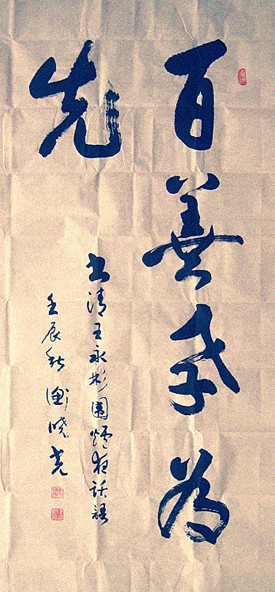 百善孝为
先
书清王永彬围炉夜话语
壬辰秋 晓尧